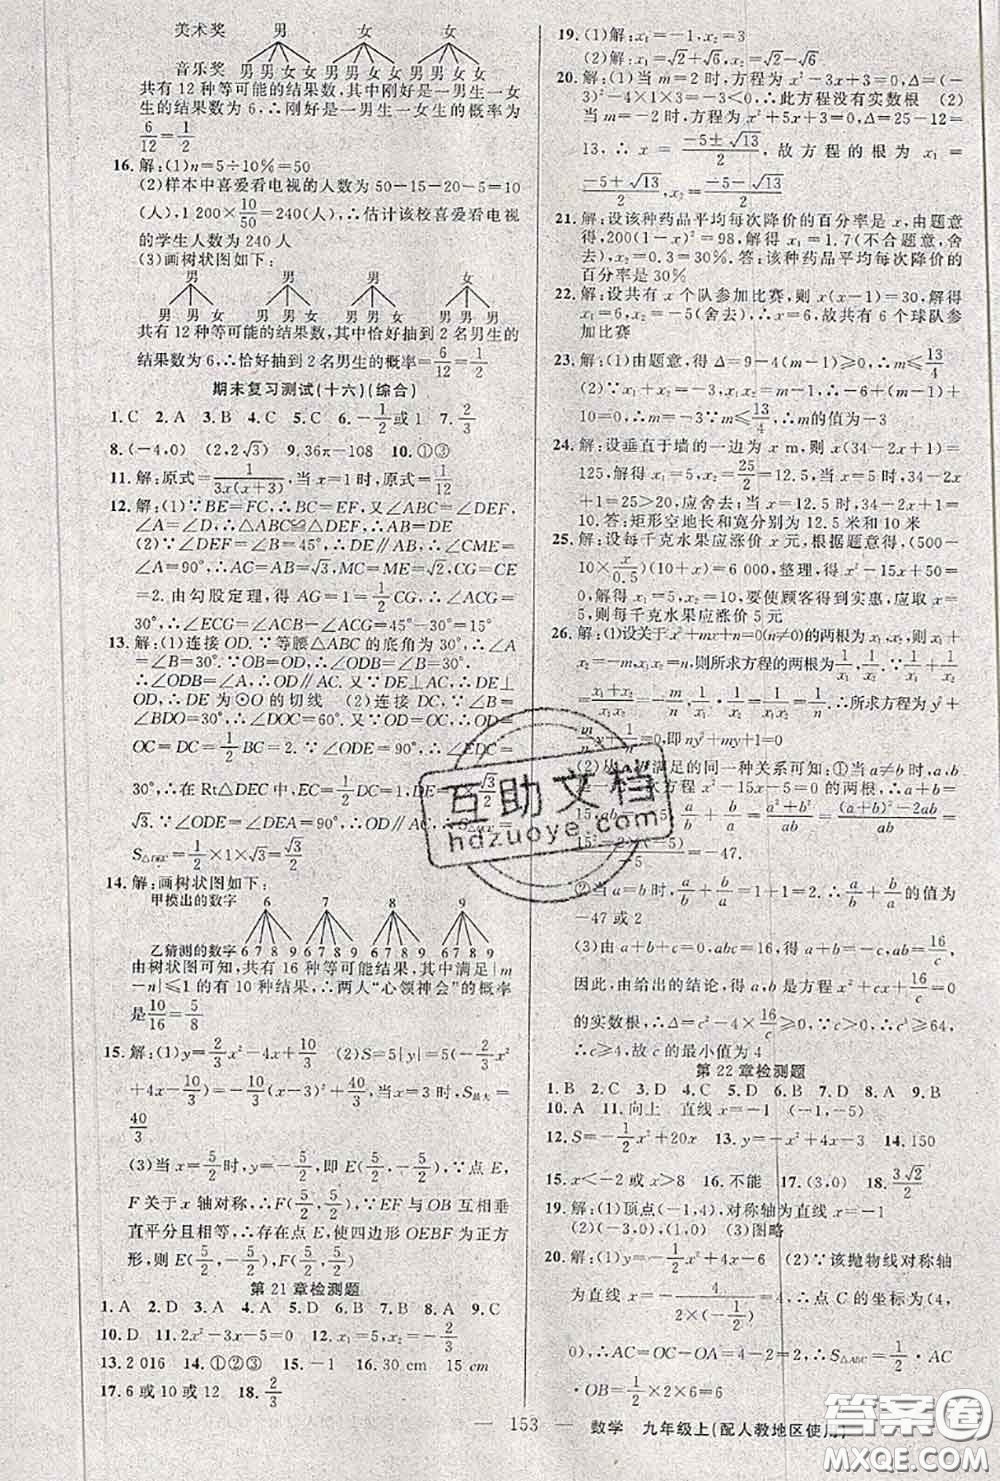 美术奖 男 女 女
音乐奖 男 男 女 女 男 男 女 女 男 男 女 女
共有 12 种等可能的结果数,其中刚好是一男生一女
生的结果数为 6,∴刚好是一男生一女生的概率为
6/12=1/2
16. 解:(1)n=5÷10%=50
(2)样本中喜爱看电视的人数为 50-15-20-5=10
(人),1 200×10/50=240(人),∴估计该校喜爱看电视
的学生人数为 240 人
(3)画树状图如下:
男 男 男 女
男 男 女 男 男 女 男 男 女 男 男 男
共有 12 种等可能的结果数,其中恰好抽到 2 名男生的
结果数为 6,∴恰好抽到 2 名男生的概率=6/12=1/2
期末复习测试(十六)(综合)
1. C 2. A 3. B 4. C 5. C 6. -1/2或 1 7. 2/3
8. (-4,0) (2,2√3) 9. 36π-108 10. ①③
11. 解:原式=1/3x(x+3),当 x=1 时,原式=1/12
12. 解:(1)∵BE=FC,∴BC=EF,又∠ABC=∠DEF,
∠A=∠D,∴△ABC≌△DEF,∴AB=DE
(2)∵∠DEF=∠B=45°,∴DE∥AB,∴∠CME=
∠A=90°,∴AC=AB=√3,MC=ME=√2,CG=CE
=2. 由勾股定理,得 AG=1=1/2CG,∴∠ACG=
30°,∴∠ECG=∠ACB-∠ACG=45°-30°=15°
13. 解:(1)连接 OD. ∵等腰△ABC 的底角为 30°,∴∠A
=∠B=30°. ∵OB=OD,∴∠ODB=∠B=30°,∴∠A
=∠ODB=30°,∴OD∥AC. 又∵DE⊥AC,∴DE⊥
OD,∴DE 为⊙O 的切线 (2)连接 DC,∵∠B=
∠BDO=30°,∴∠DOC=60°,∵OD=OC=DC,∴OD=
OC=DC=1/2BC=2. ∵∠ODE=90°,∴∠EDC=
30°,∴在 Rt△DEC 中,EC=1/2DC=1,∴DE=√3/2DC=
√3. ∵∠ODE=∠DEA=90°,∴OD∥AC,∴
S△OEC=1/2×1×√3=√3/2
14. 解:画树状图如下:
甲摸出的数字 6 7 8 9
乙猜测的数字 6 7 8 9 6 7 8 9 6 7 8 9 6 7 8 9
由树状图可知,共有 16 种等可能结果,其中满足|m
-n|≤1 的有 10 种结果,∴两人“心领神会”的概率
是10/16=5/8
15. 解:(1)y=2/3x²-4x+10/3 (2)S=5|y|=5(-2/3x²
+4x-10/3)=-10/3(x-3)²+40/3,∴当 x=3 时,S最大=
40/3
(3)当 x=5/2时,y=-5/2,即 E(5/2,-5/2),∵点 E,
F 关于 x 轴对称,∴F(5/2,5/2),∵EF 与 OB 互相垂
直平分且相等,∴存在点 E,使四边形 OEBF 为正方
形,则 E(5/2,-5/2),F(5/2,5/2)
第 21 章检测题
1. A 2. A 3. A 4. B 5. C 6. D 7. B 8. A 9. C
10. D 11. 2x²-3x-5=0 12. x₁=5,x₂=-2/3
13. 2 016 14. ①②③ 15. -1 16. 30 cm 15 cm
17. 6 或 10 或 12 18. 2/3
19. (1)解:x₁=x₂=3
(2)解:x₁=√2+√6,x₂=√2-√6
20. 解:(1)当 m=2 时,方程为 x²-3x+3=0,Δ=(-
3)²-4×1×3=-3<0,∴此方程没有实数根 (2)
当 m=-2 时,方程为 x²+5x+3=0,Δ=25-12=
13,∴x=-5±√13/2,故方程的根为 x₁=
-5+√13/2,x₂=-5-√13/2
21. 解:设该种药品平均每次降价的百分率是 x,由题意
得,200(1-x)²=98,解得 x₁=1.7(不合题意,舍
去),x₂=0.3=30%. 答:该种药品平均每次降价的
百分率是 30%
22. 解:设共有 x 个队参加比赛,则 x(x-1)=30,解得
x₁=6,x₂=-5(舍去),∴x=6,故共有 6 个球队参
加比赛
23. 解:(1)由题意,得 Δ=9-4(m-1)≥0,∴m≤13/4
(2)∵x₁+x₂=-3,x₁x₂=m-1,∴2×(-3)+m-1
+10=0,∴m=-3,∵m≤13/4,∴m=-3,∴m 的值为-3
24. 解:设垂直于墙的一边为 x m,则 x(34-2x+1)=
125,解得 x₁=5,x₂=25/2=12.5,当 x=5 时,34-2x+
1=25>20,应舍去;当 x=12.5 时,34-2x+1=
10. 答:矩形空地长和宽分别为 12.5 米和 10 米
25. 解:设每千克水果应涨价 x 元,根据题意,得(500-
x/0.5×10)(10+x)=6 000,整理,得 x²-15x+50=
0,解得 x₁=5,x₂=10,要使顾客得到实惠,应取 x=
5,则每千克水果应涨价 5 元
26. 解:(1)设关于 x²+mx+n=0(n≠0)的两根为 x₁,x₂,
x₁+x₂=-m,x₁x₂=n,则所求方程的两根为1/x₁,1/x₂,∵1/x₁+1/x₂
=x₁+x₂/x₁x₂=-m/n,1/x₁·1/x₂=1/x₁x₂=1/n,∴所求方程为 y²+
m/ny+1/n=0,即 ny²+my+1=0
(2)从a,b满足的同一种关系可知:①当 a≠b 时,a,
b 是方程 x²-15x-5=0 的两根,∴a+b=
15,ab=-5,∴a/b+b/a=a²+b²/ab=(a+b)²-2ab/ab=
15²-2×(-5)/-5=-47.
②当 a=b 时,a/b+b/a=1+1=2,∴a/b+b/a的值为
-47 或 2
(3)由 a+b+c=0,abc=16,得 a+b=-c,ab=16/c
因此,由给出的结论,得 a,b 是方程 x²+cx+16/c=0
的实数根,∴Δ=c²-4×16/c≥0,∵c>0,∴c³≥64,
∴c≥4,故 c 的最小值为 4
第 22 章检测题
1. B 2. C 3. D 4. C 5. D 6. B 7. D 8. A 9. B
10. A 11. 向上 直线 x=-1 (-1,-5)
12. S=-1/2x²+20x 13. y=-x²+4x-3 14. 150
15. x<-2 或 x>8 16. 不能 17. (3,0) 18. 3√2/2
19. 解:(1)顶点(-1,4),对称轴为直线 x=-1
(2)(-3,0),(1,0) (3)图略
20. 解:(1)y=-1/2x²+4x-6 (2)∵该抛物线对称轴
为直线 x=-4/2×(-1/2)=4,∴点 C 的坐标为(4,
0),∴AC=OC-OA=4-2=2,∴S△ABC=1/2·AC
·OB=1/2×2×6=6
互助文档
hdzuoye.com
答案圈
MXQE.COM
— 153 — 数学 九年级上(配人教地区使用)